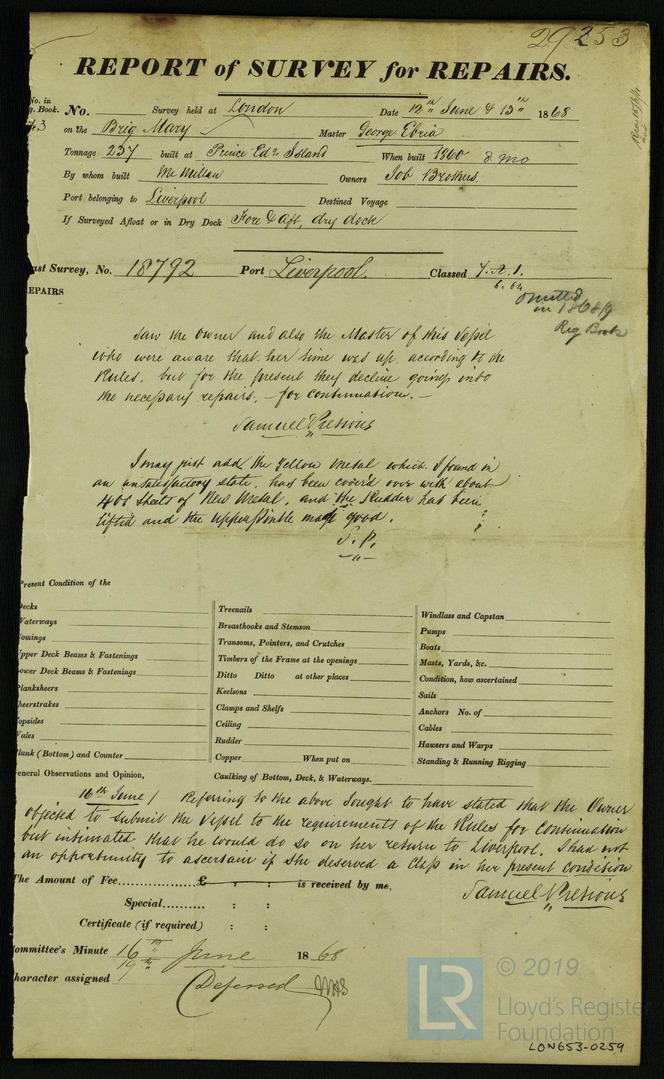 29253
REPORT of SURVEY for REPAIRS.
No. in
g. Book. No. Survey held at London Date 12th June & 13th 1868
43 on the Brig Mary Master George Ebria
Tonnage 237 built at Prince Edwd Island When built 1860 8 mo
By whom built McMillan Owners Job Brothers.
Port belonging to Liverpool Destined Voyage
If Surveyed Afloat or in Dry Dock Fore & Aft, dry dock
ast Survey, No. 18792 Port Liverpool. Classed 7. A. 1.
6.64
EPAIRS
omitted
in 1868/9
Reg Book
Saw the Owner and also the Master of this Vessel
who were aware that her time was up according to the
Rules, but for the present they decline going into
the necessary repairs, - for Continuation. -
Samuel Pretious
I may just add, the Yellow Metal which I found in
an unsatisfactory state, has been cover'd over with about
400 Sheets of New Metal, and the Rudder has been
lifted and the upper Pintle made good.
S. P.
Present Condition of the
ecks
Waterways
omings
pper Deck Beams & Fastenings
ower Deck Beams & Fastenings
lanksheers
heerstrakes
opsides
Wales
lank (Bottom) and Counter
Treenails
Breasthooks and Stemson
Transoms, Pointers, and Crutches
Timbers of the Frame at the openings
Ditto Ditto at other places
Keelsons
Clamps and Shelfs
Ceiling
Rudder
Copper When put on
Caulking of Bottom, Deck, & Waterways.
Windlass and Capstan
Pumps
Boats
Masts, Yards, &c.
Condition, how ascertained
Sails
Anchors No. of
Cables
Hawsers and Warps
Standing & Running Rigging
eneral Observations and Opinion,
16th June / Referring to the above I ought to have stated that the Owner
objected to submit the Vessel to the requirements of the Rules for Continuation
but intimated that he would do so on her return to Liverpool. I had not
an opportunity to ascertain if she deserved a Class in her present condition
Samuel Pretious
The Amount of Fee............£ : : is received by me,
Special.......... : :
Certificate (if required) : :
ommittee's Minute 16th June 1868
19th
haracter assigned Deferred
© 2019
LR
Lloyd's Register
Foundation
LON653-0259